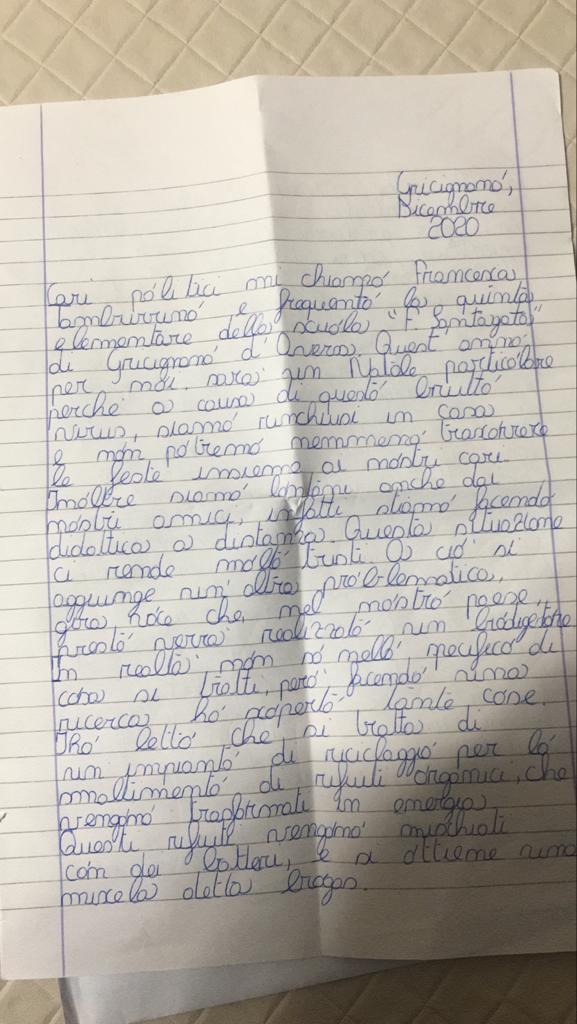 Gricignano,
Dicembre
2020
Cari politici mi chiamo Francesca
e frequento la quinta
elementare della scuola "F. Santagata"
di Gricignano d'Aversa. Quest'anno
per noi sarà un Natale particolare
perché a causa di questo brutto
virus, siamo rinchiusi in casa
e non potremo nemmeno trascorrere
le feste insieme ai nostri cari.
Inoltre siamo lontani anche dai
nostri amici, infatti stiamo facendo
didattica a distanza. Questa situazione
ci rende molto tristi. A ciò si
aggiunge un'altra problematica,
gira voce che, nel nostro paese,
presto verrà realizzato un biodigestore
In realtà non so nello specifico di
cosa si tratti, però facendo una
ricerca ho scoperto tante cose.
Ho letto che si tratta di
un impianto di riciclaggio per lo
smaltimento di rifiuti organici, che
vengono trasformati in energia.
Questi rifiuti vengono mischiati
con dei batteri, e si ottiene una
miscela detta biogas.